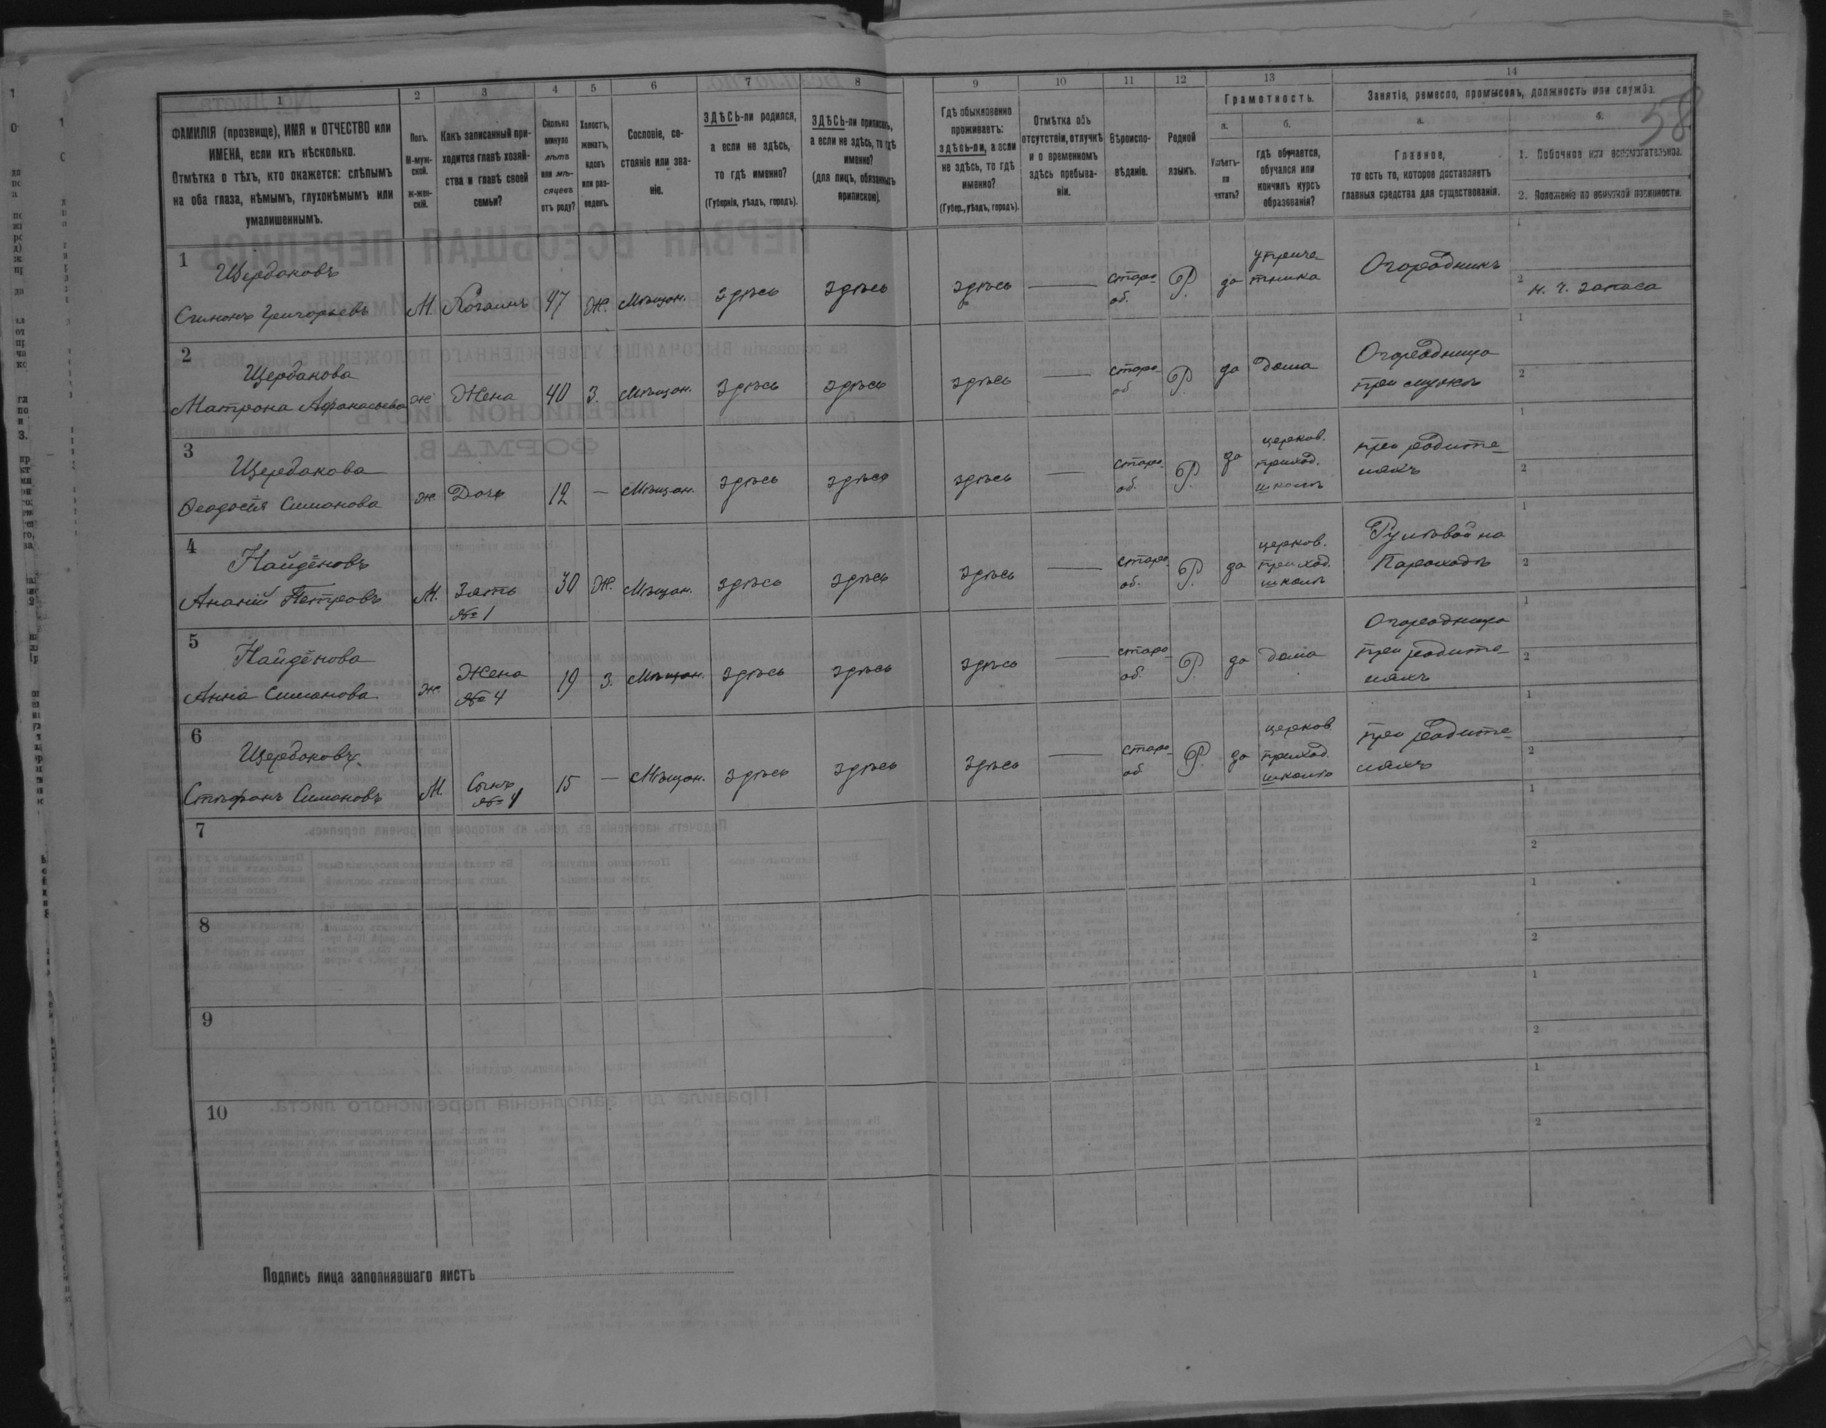 58
1 2 3 4 5 6 7 8 9 10 11 12 13 14
ФАМИЛІЯ (прозвище), ИМЯ и ОТЧЕСТВО или
ИМЕНА, если ихъ нѣсколько.
Отмѣтка о тѣхъ, кто окажется: слѣпымъ
на оба глаза, нѣмымъ, глухонѣмымъ или
умалишеннымъ.
Полъ.
М-муж-
ской.
ж-жен-
скій.
Какъ записанный при-
ходится главѣ хозяй-
ства и главѣ своей
семьи?
Сколько
минуло
лѣтъ
или мѣ-
сяцевъ
отъ роду?
Холостъ,
женатъ,
вдовъ
или раз-
веденъ.
Сословіе, со-
стояніе или зва-
ніе.
ЗДѢСЬ-ли родился,
а если не здѣсь,
то гдѣ именно?
(Губернія, уѣздъ, городъ).
ЗДѢСЬ-ли приписанъ,
а если не здѣсь, то гдѣ
именно?
(для лицъ, обязанныхъ
припискою).
Гдѣ обыкновенно
проживаетъ:
здѣсь-ли, а если
не здѣсь, то гдѣ
именно?
(Губер., уѣздъ, городъ).
Отмѣтка объ
отсутствіи, отлучкѣ
и о временномъ
здѣсь пребыва-
ніи.
Вѣроиспо-
вѣданіе.
Родной
языкъ.
Грамотность.
а.
Умѣетъ-
ли
читать?
б.
гдѣ обучается,
обучался или
кончилъ курсъ
образованія?
Занятіе, ремесло, промыселъ, должность или служба.
а.
Главное,
то есть то, которое доставляетъ
главныя средства для существованія.
б.
1. Побочное или вспомогательное.
2. Положеніе по воинской повинности.
1
Щербаковъ
Симонъ Григорьевъ
М. Хозяинъ 47 Ж. Мѣщан. здѣсь здѣсь здѣсь — старо-
об. Р. да учреж
тника
Огородникъ
1
2 н. ч. запаса
2
Щербакова
Матрона Афанасьева
ж Жена 40 З. Мѣщан. здѣсь здѣсь здѣсь — старо-
об Р. да дома
Огородница
при мужѣ
1
2
3
Щербакова
Ѳеодосія Симонова
ж Дочь 12 — Мѣщан. здѣсь здѣсь здѣсь — старо-
об. Р. да церков.
приход.
школѣ
при родите-
ляхъ
1
2
4
Найдёновъ
Ананій Петровъ
М. Зять
№ 1
30 Ж. Мѣщан. здѣсь здѣсь здѣсь — старо-
об. Р. да церков.
приход.
школѣ
Рулевой на
Пароходѣ
1
2
5
Найдёнова
Анна Симонова
ж Жена
№ 4
19 З. Мѣщан. здѣсь здѣсь здѣсь — старо-
об. Р. да дома
Огородница
при родите-
ляхъ
1
2
6
Щербаковъ
Стефанъ Симоновъ
М. Сынъ
15 — Мѣщан. здѣсь здѣсь здѣсь — старо-
об Р. да церков
приход.
школѣ
при родите-
ляхъ
1
2
7
1
2
8
1
2
9
1
2
10
1
2
Подпись лица заполнявшаго листъ